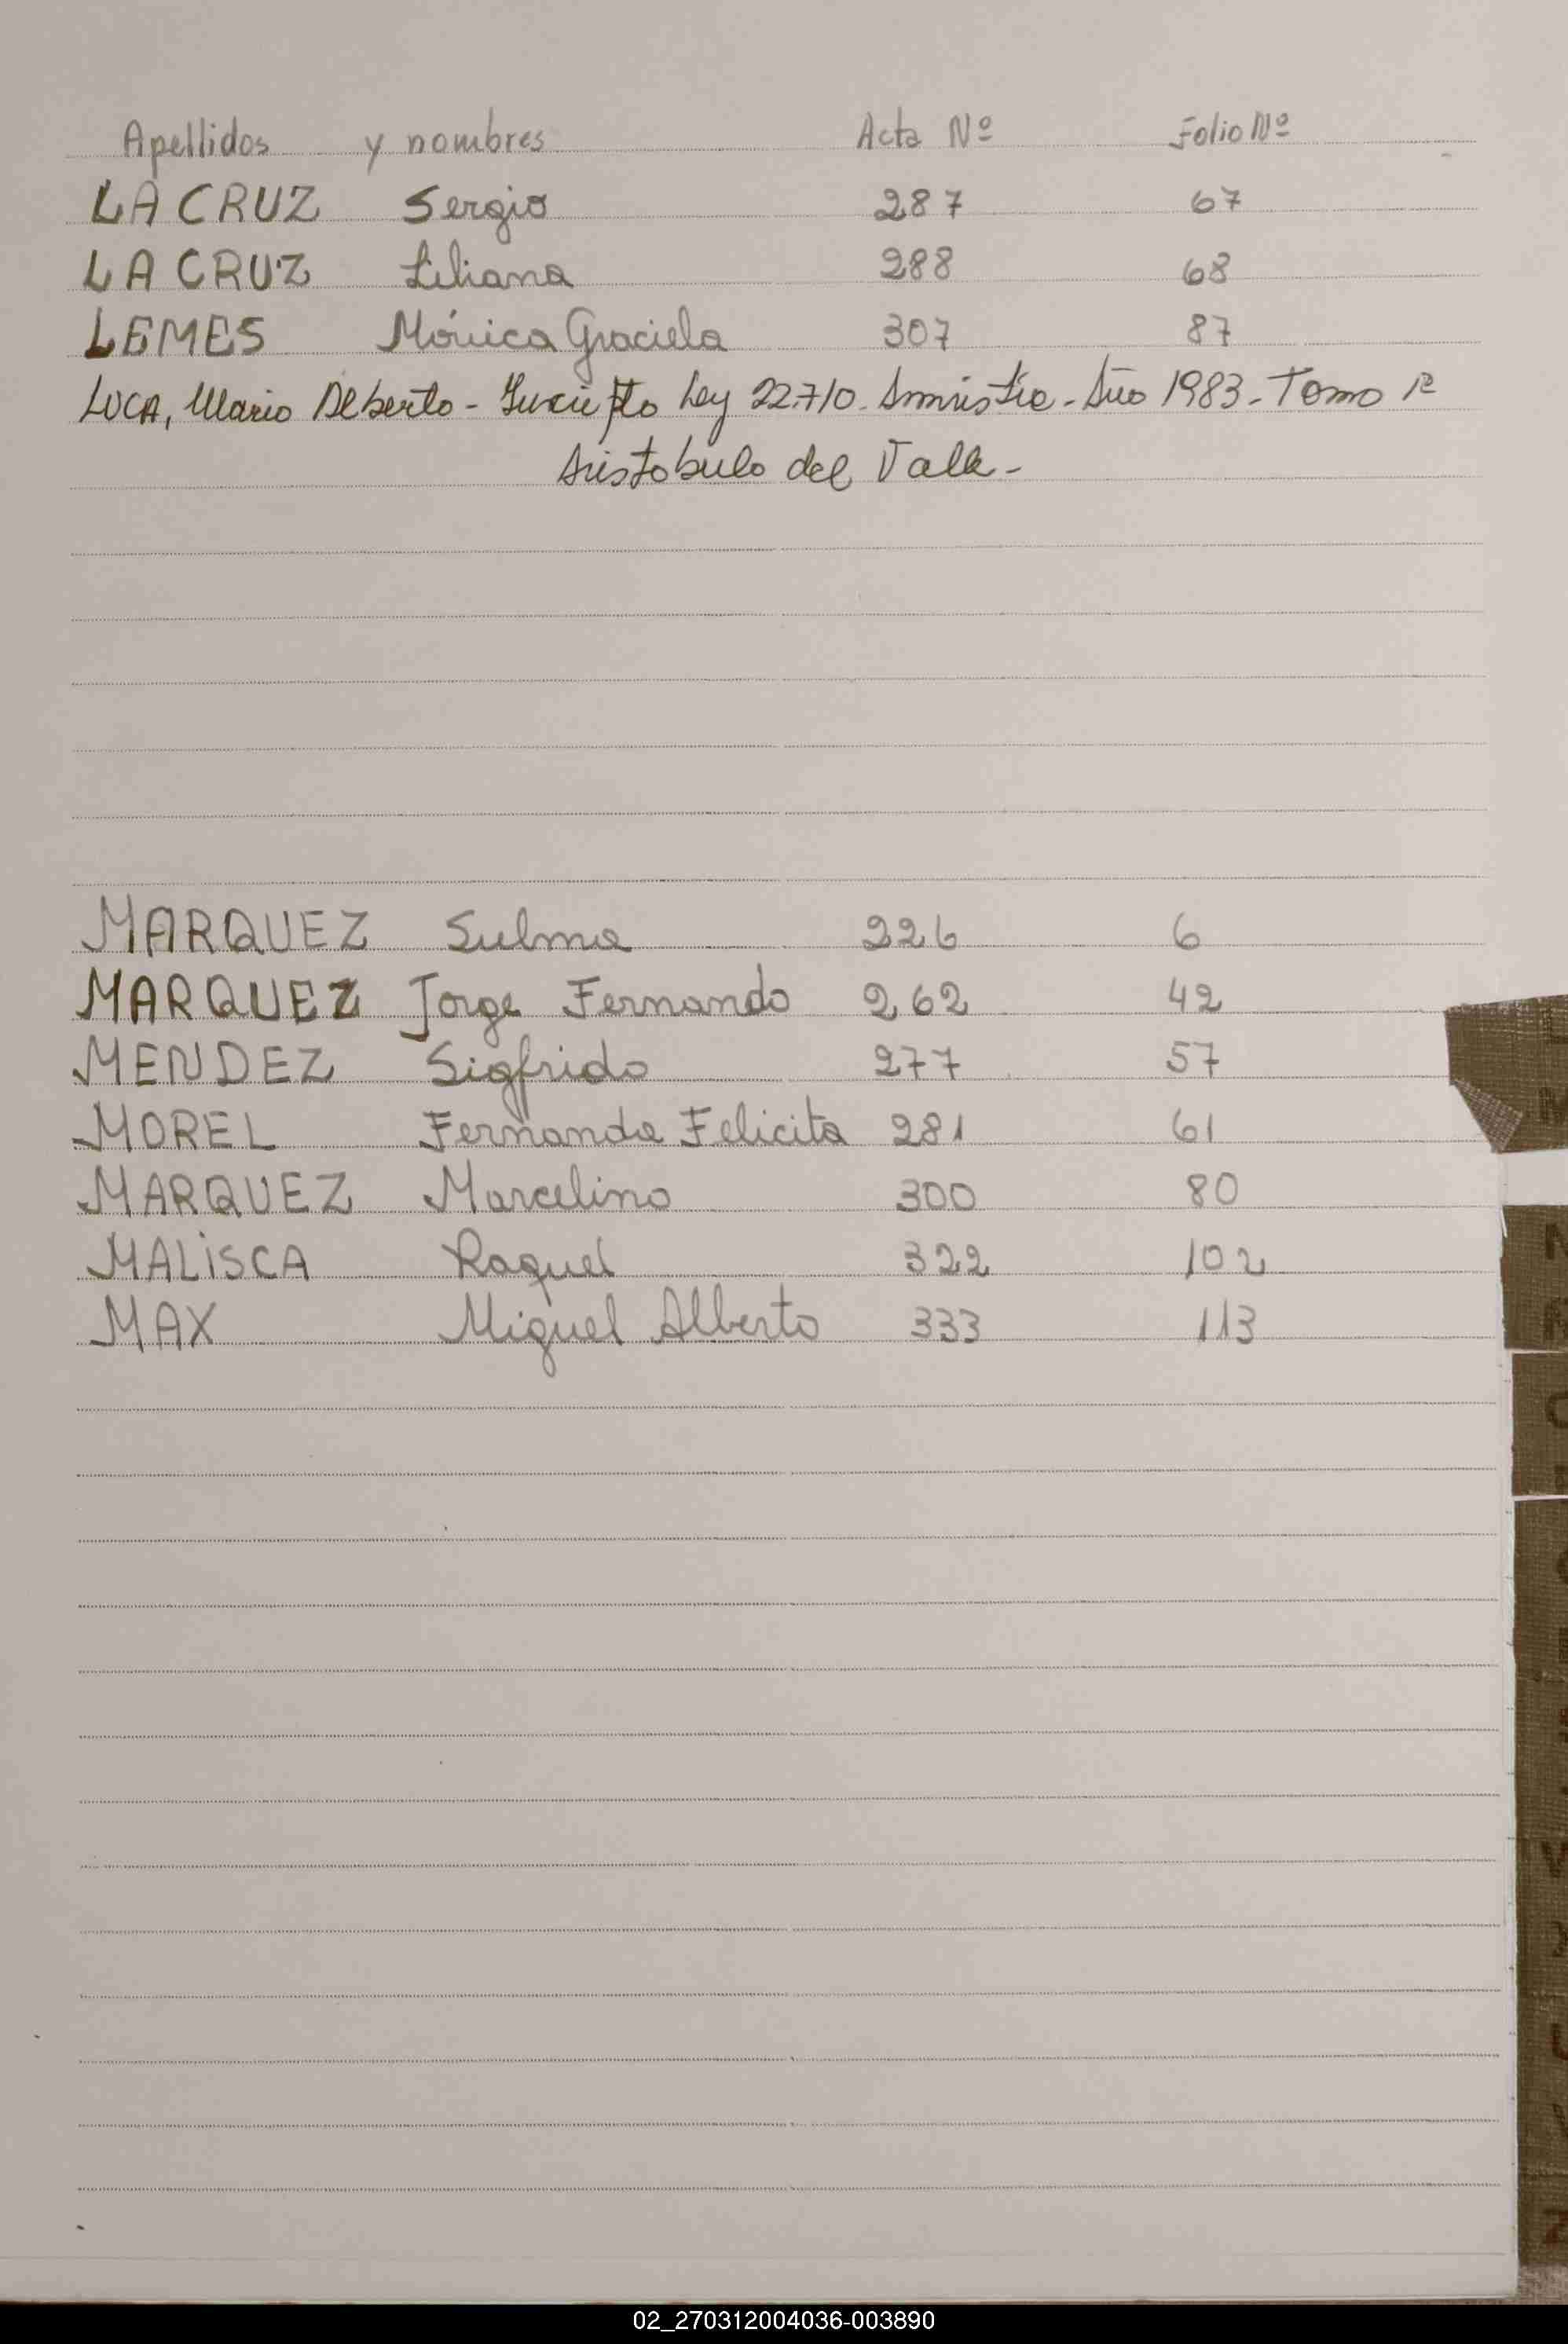 Apellidos y nombres Acta Nº Folio Nº
LA CRUZ Sergio 287 67
LA CRUZ Liliana 288 68
LEMES Mónica Graciela 307 87
LUCA, Mario Alberto - Inscripto Ley 22.710. Amnistia - Año 1983 - Tomo 1º
Aristobulo del Valle -
MARQUEZ Sulma 226 6
MARQUEZ Jorge Fernando 262 42
MENDEZ Sigfrido 277 57
MOREL Fernanda Felicita 281 61
MARQUEZ Marcelino 300 80
MALISCA Raquel 322 102
MAX Miguel Alberto 333 113
02_270312004036-003890